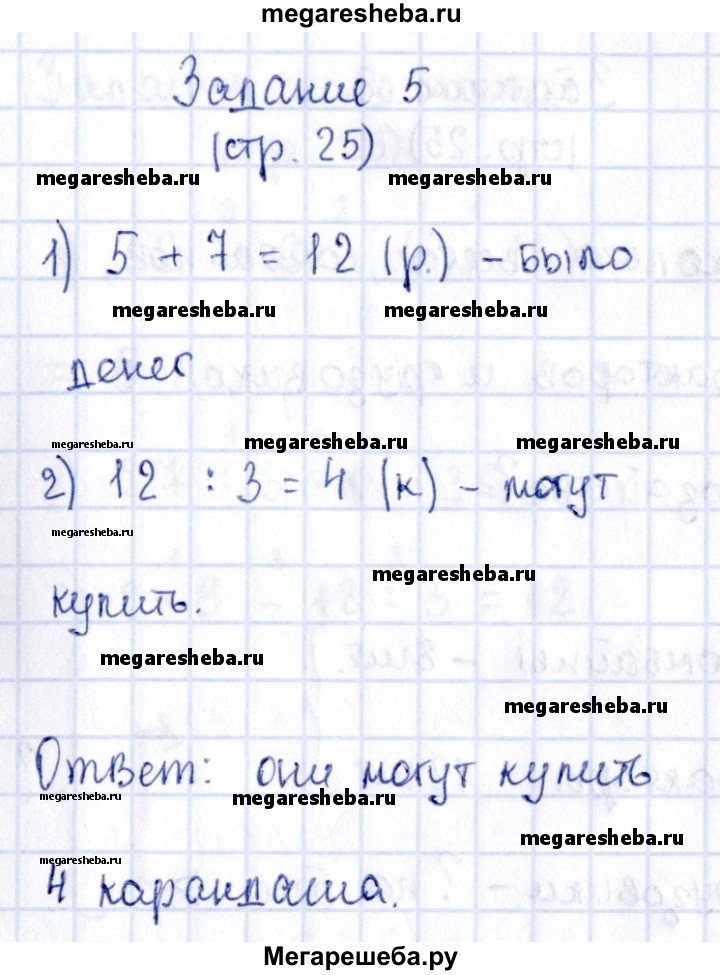 megaresheba.ru
Задание 5
(стр. 25)
megaresheba.ru megaresheba.ru
1) 5 + 7 = 12 (р.) - было
megaresheba.ru megaresheba.ru
денег
megaresheba.ru megaresheba.ru megaresheba.ru
2) 12 : 3 = 4 (к) - могут
megaresheba.ru
megaresheba.ru
купить.
megaresheba.ru
megaresheba.ru
Ответ: они могут купить
megaresheba.ru megaresheba.ru
megaresheba.ru
megaresheba.ru
4 карандаша.
Мегарешеба.ру